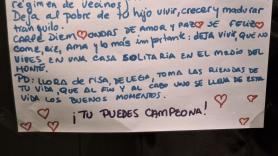 régimen de vecinos)
Deja al pobre de tu hijo vivir, crecer y madurar
tranquilo.
Carpe Diem ONDAS DE AMOR Y PAZ SE FELIZ
COME, RIE, AMA y lo más importante: DEJA VIVIR, QUE NO
VIVES EN UNA CASA SOLITARIA EN EL MEDIO DEL
MONTE.
PD: LLORA DE RISA, DELEGA, TOMA LAS RIENDAS DE
TU VIDA, QUE AL FIN Y AL CABO UNO SE LLEVA DE ESTA
VIDA LOS BUENOS MOMENTOS.
¡TU PUEDES CAMPEONA!